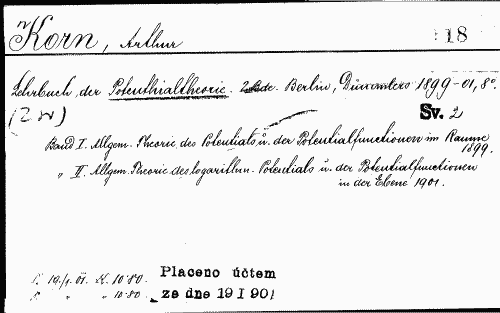 Korn, Arthur
18
Lehrbuch der Potenthialtheorie. 2 Bde. Berlin, Dümmlers 1899-01, 8°
Sv. 2
Band I. Allgem. Theorie des Potentials u. der Potentialfunctionen im Raume
1899.
" II. Allgem. Theorie des logarithm. Potentials u. der Potentialfunctionen
in der Ebene 1901.
19/1. 01. K. 10·80.
" " 10·80
Placeno účtem
ze dne 19 I 901